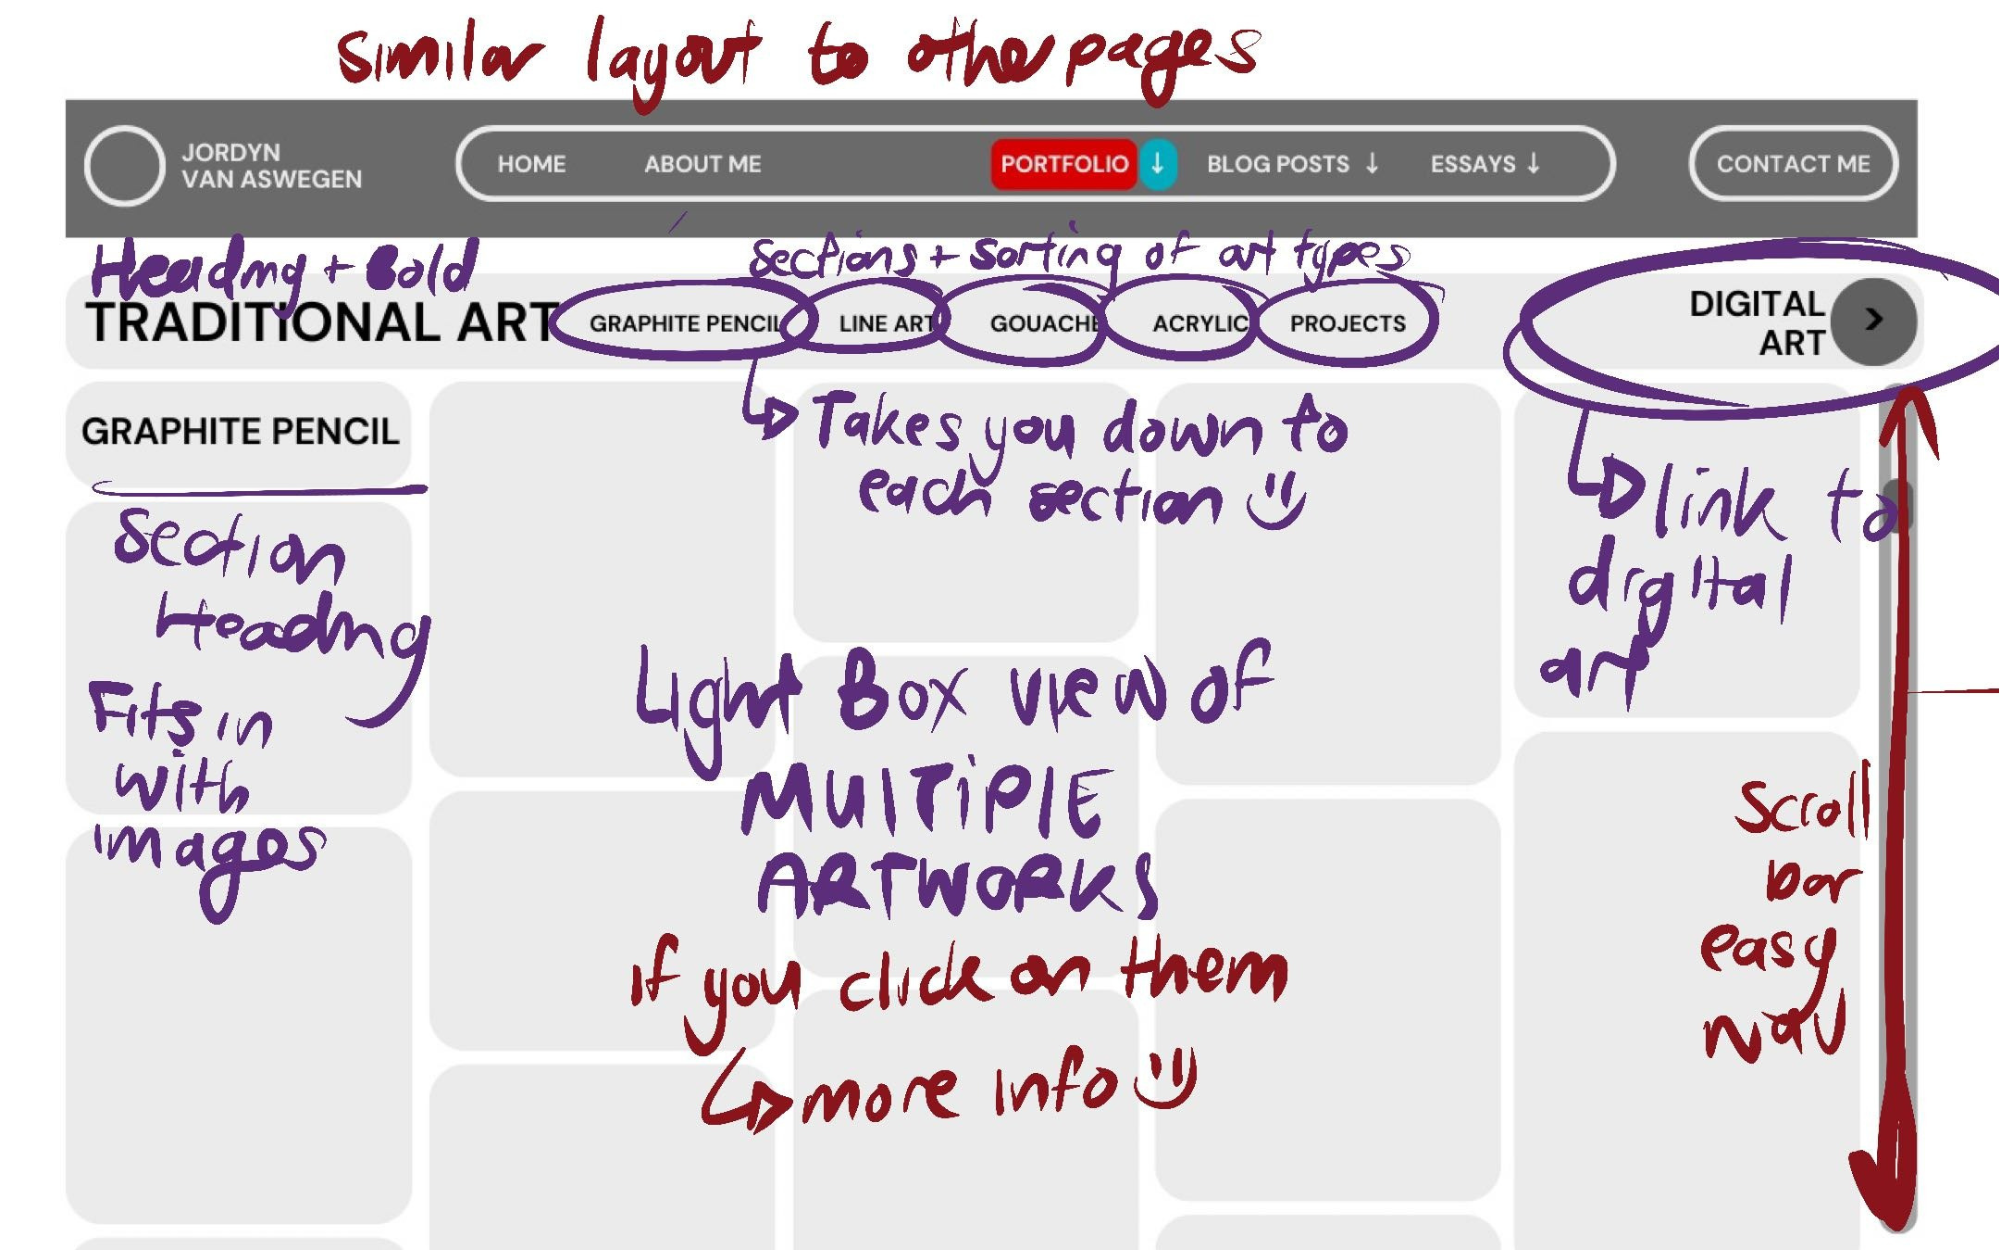 Similar layout to other pages
JORDYN
VAN ASWEGEN
HOME ABOUT ME PORTFOLIO ↓ BLOG POSTS ↓ ESSAYS ↓
CONTACT ME
Heading + Bold
Sections + Sorting of art types
TRADITIONAL ART GRAPHITE PENCIL LINE ART GOUACHE ACRYLIC PROJECTS
DIGITAL
ART
GRAPHITE PENCIL
Takes you down to
each section
link to
digital
art
Section
Heading
Fits in
with
images
Light Box view of
MULTIPLE
ARTWORKS
if you click on them
more info
Scroll
bar
easy
nav